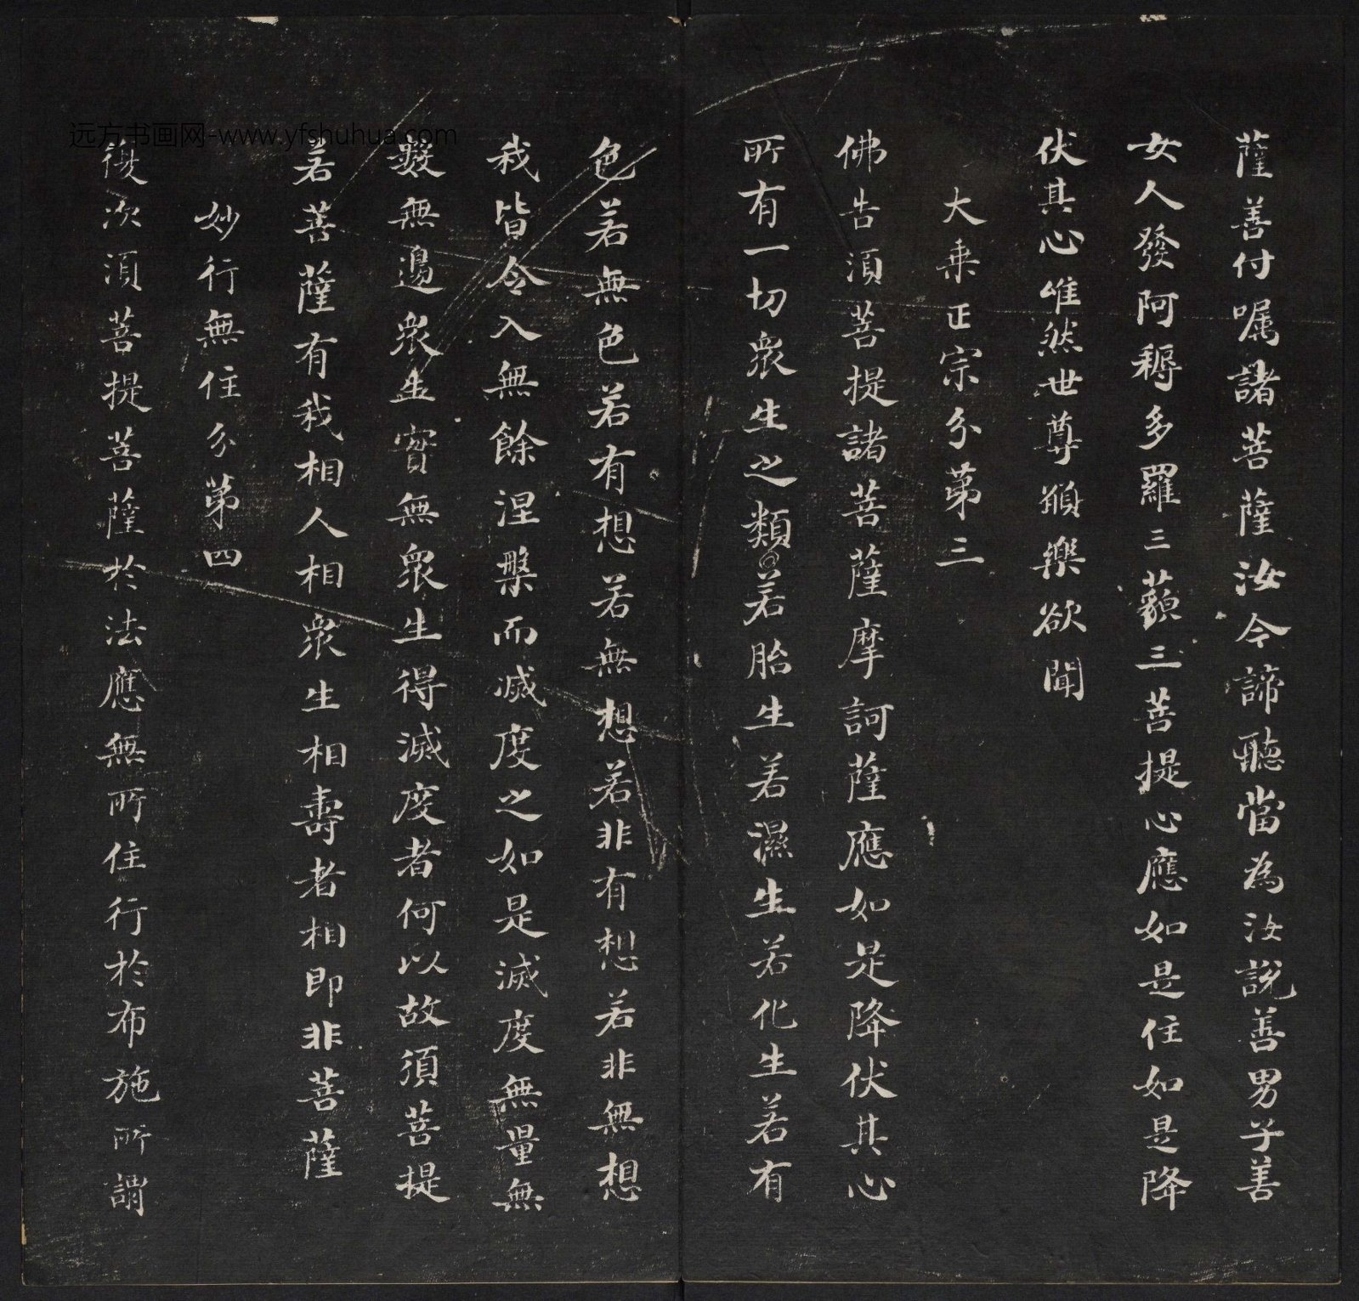 薩善付囑諸菩薩汝今諦聽當為汝說善男子善
女人發阿耨多羅三藐三菩提心應如是住如是降
伏其心唯然世尊願樂欲聞
大乗正宗分第三
佛告須菩提諸菩薩摩訶薩應如是降伏其心
所有一切衆生之類若胎生若濕生若化生若有
色若無色若有想若無想若非有想若非無想
我皆令入無餘涅槃而滅度之如是滅度無量無
數無邊衆生實無衆生得滅度者何以故須菩提
若菩薩有我相人相衆生相壽者相即非菩薩
妙行無住分第四
復次須菩提菩薩於法應無所住行於布施所謂
远方书画网-www.yfshuhua.com